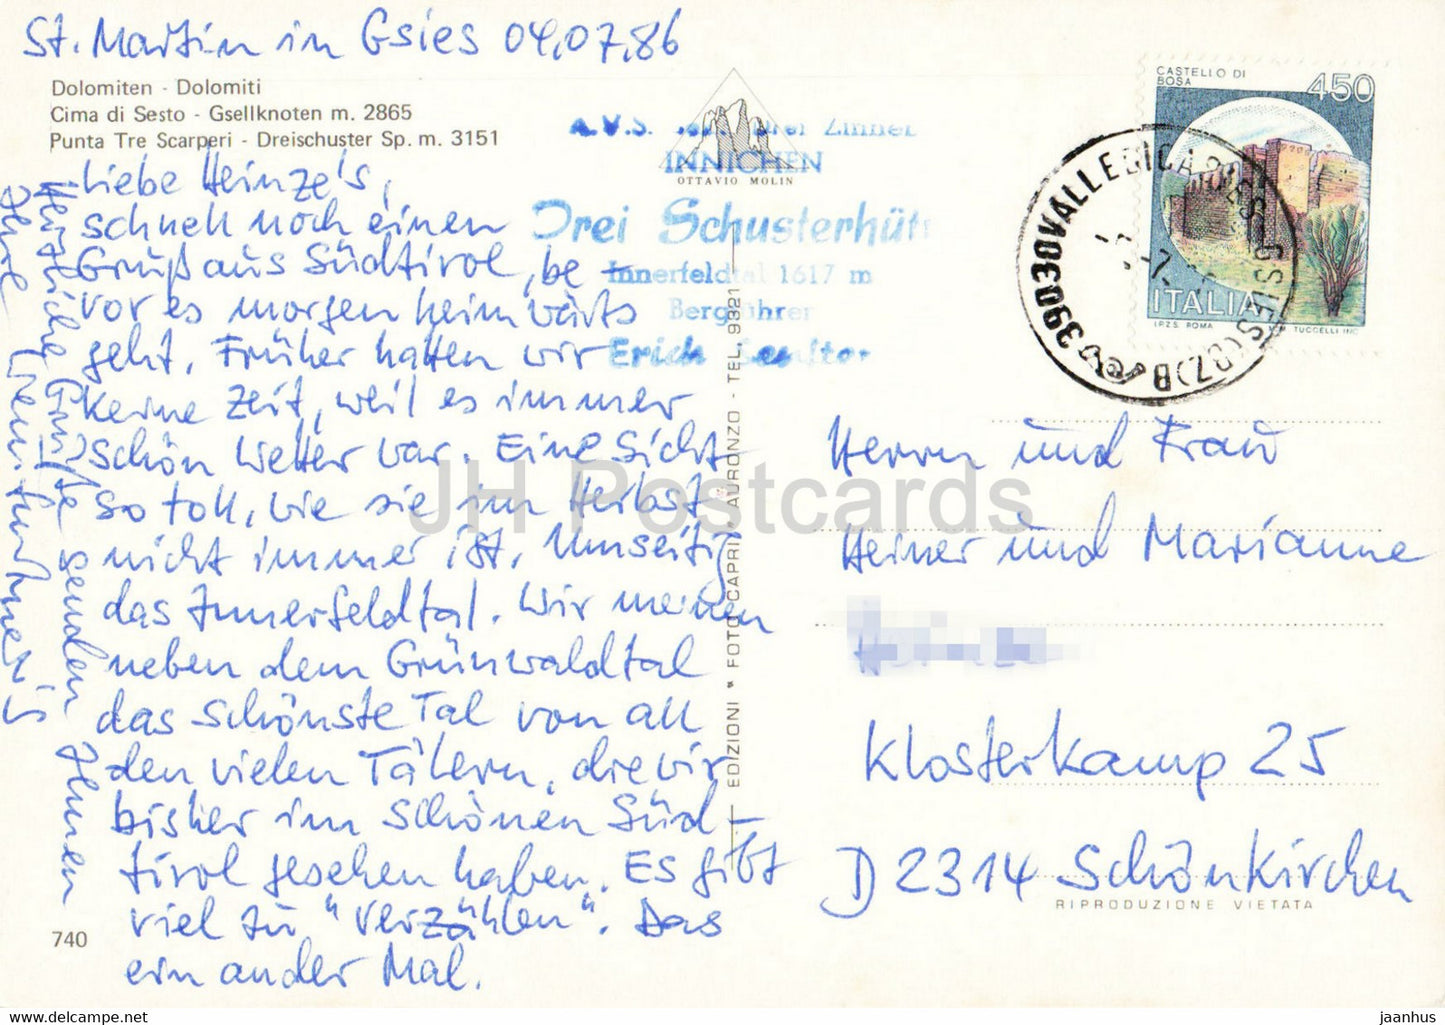 St. Martin in Gsies 04.07.86
Dolomiten - Dolomiti
Cima di Sesto - Gsellknoten m. 2865
Punta Tre Scarperi - Dreischuster Sp. m. 3151
Liebe Heinze's,
schnell noch einen
Gruß aus Südtirol, be
vor es morgen heimwärts
geht. Früher hatten wir
keine Zeit, weil es immer
schön Wetter war. Eine Sicht
so toll, wie sie im Herbst
nicht immer ist. Umseitig
das Innerfeldtal. Wir meinen
neben dem Grünwaldtal
das schönste Tal von all
den vielen Tälern, die wir
bisher im schönen Süd-
tirol gesehen haben. Es gibt
viel zu "Verzählen". Das
ein ander Mal.
Herzliche Grüße senden Ihnen
Ihre
740
OTTAVIO MOLIN
A.V.S. Drei Zinnen
INNICHEN
Drei Schusterhütt
Innerfeldtal 1617 m
Bergführer
Erich
EDIZIONI * FOTO CAPRI * AURONZO - TEL. 9321
CASTELLO DI
BOSA
450
ITALIA
I.P.Z.S. ROMA M. TUCCELLI INC.
39030 VALLE DI CASIES GSIES (BZ) B
Herrn und Frau
Heiner und Marianne
Klosterkamp 25
D 2314 Schönkirchen
RIPRODUZIONE VIETATA
JH Postcards
hipstamp.com
jaanhus